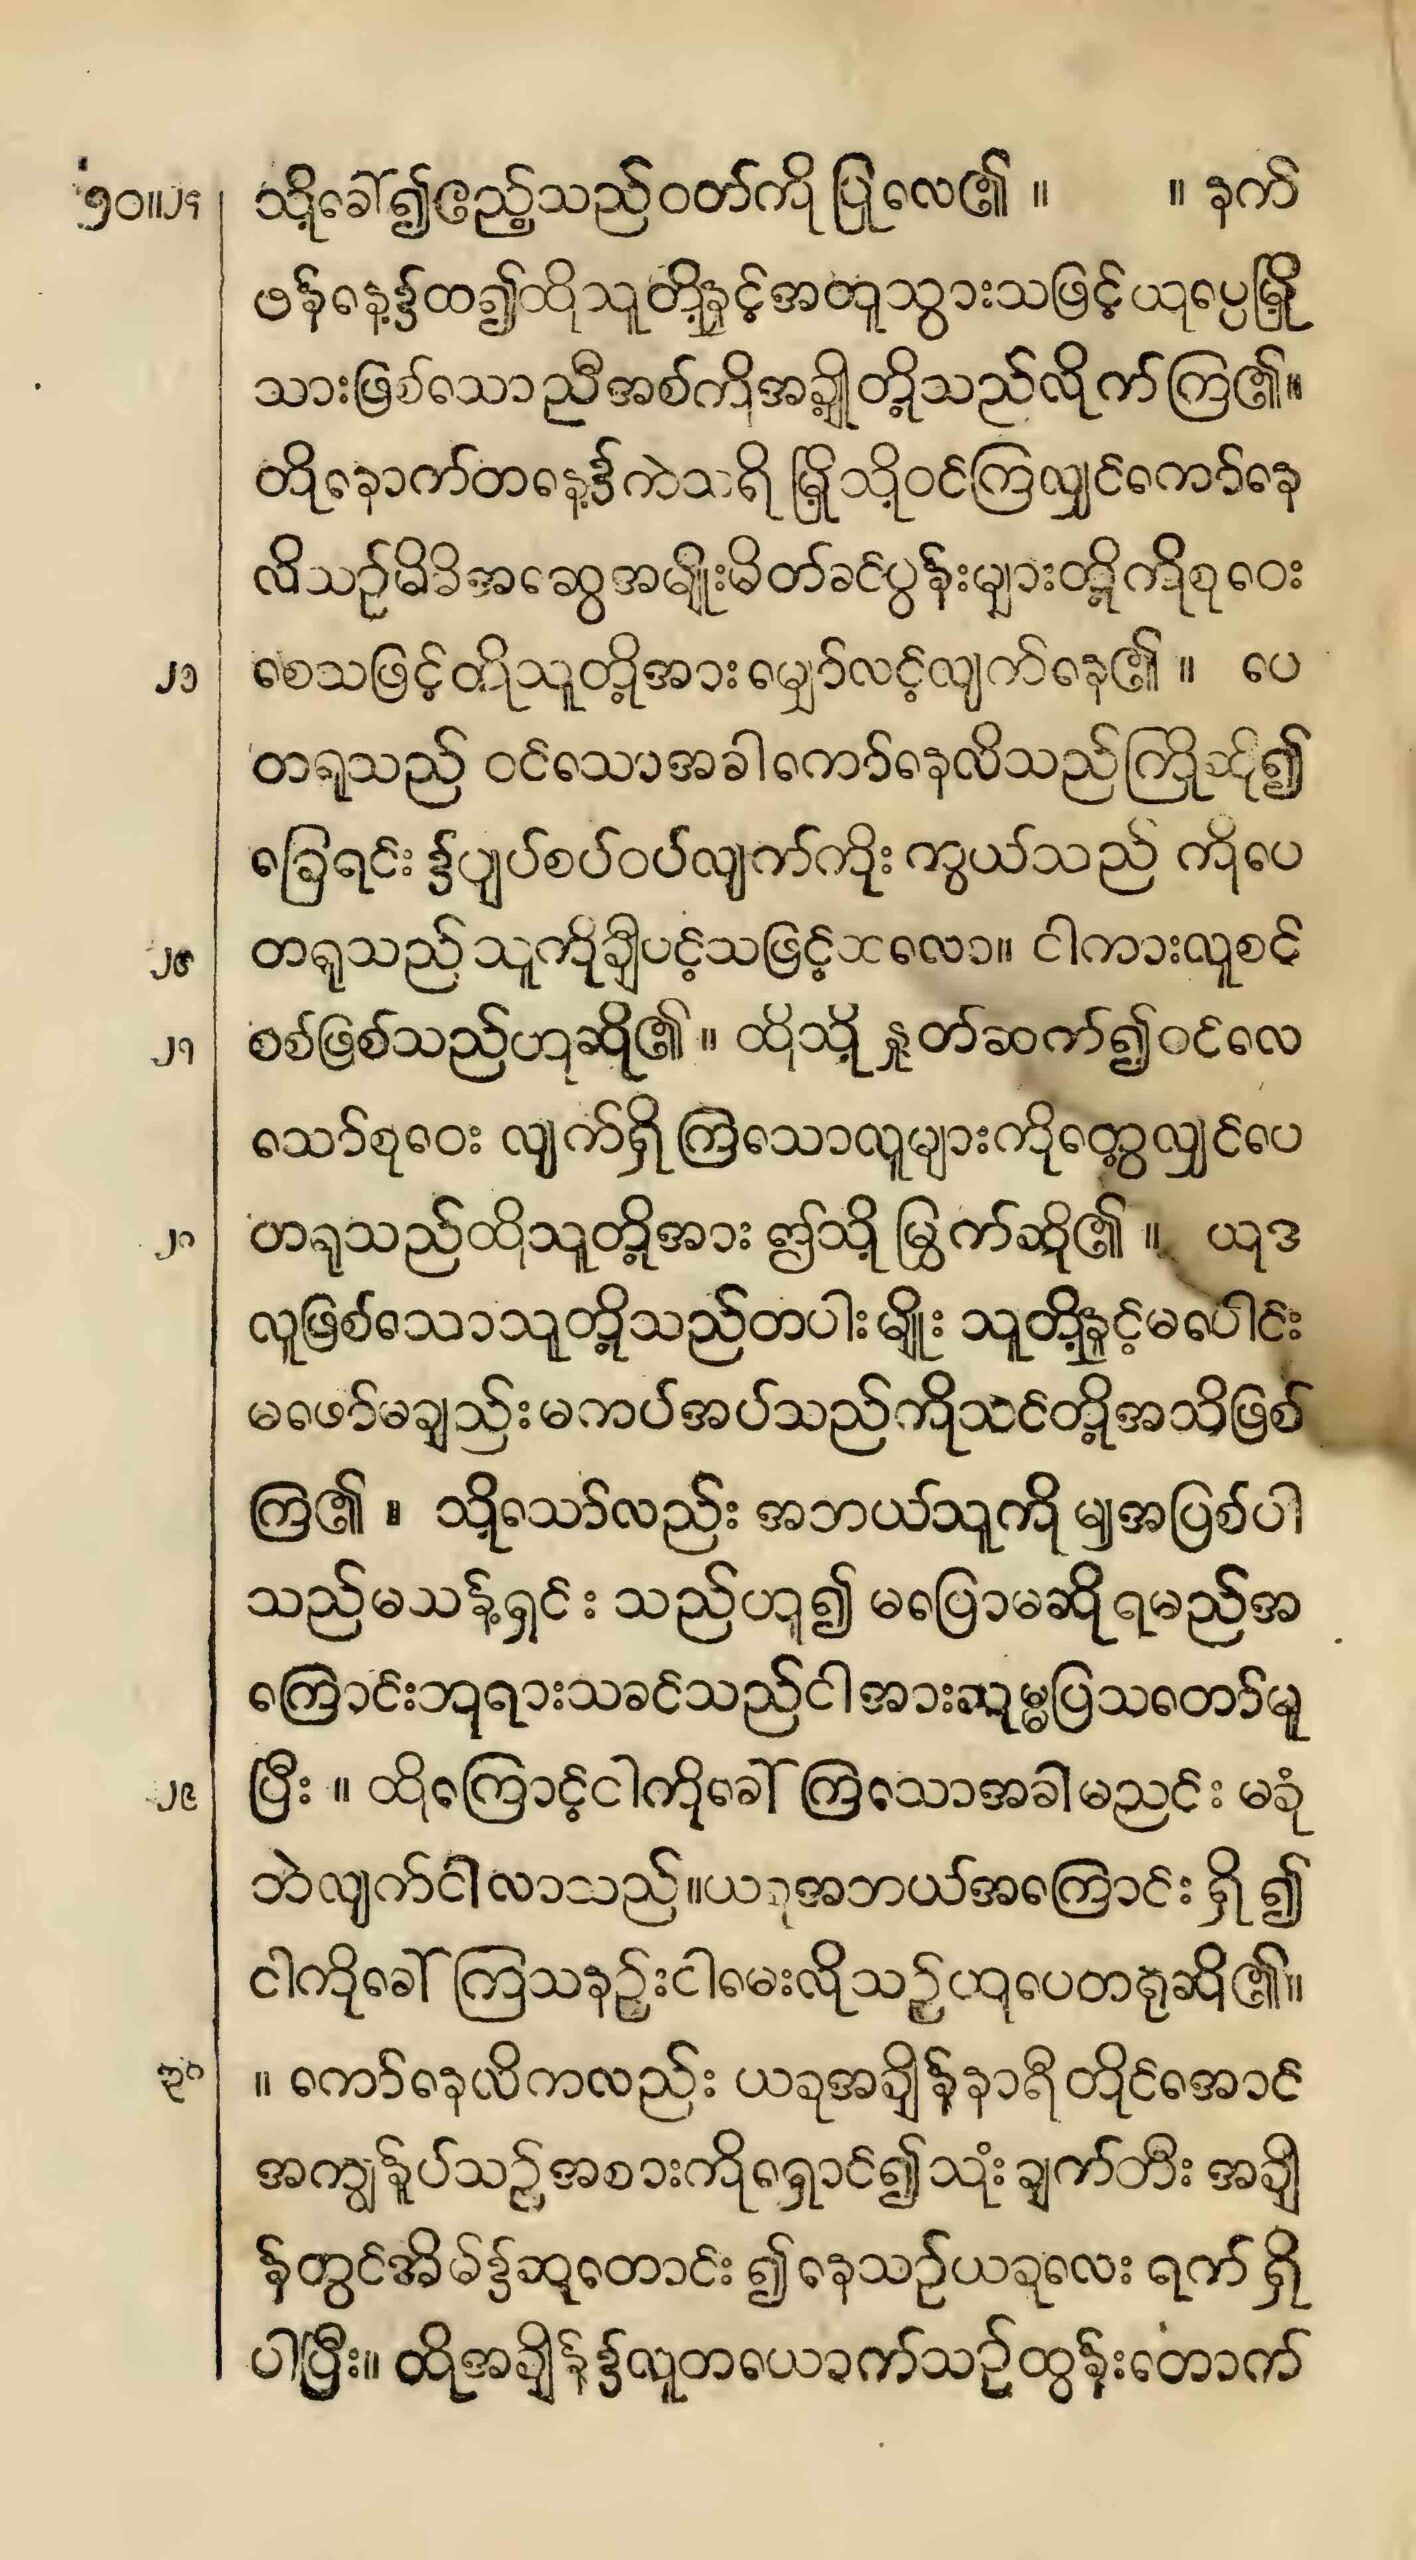 ၁၀။၂၄ သို့ခေါ်၍ဧည့်သည်ဝတ်ကိုပြုလေ၏ ။ ။ နက်
ဖန်နေ့၌ထ၍ထိုသူတို့နှင့်အတူသွားသဖြင့်ယုပ္ပေမြို့
သားဖြစ်သောညီအစ်ကိုအချို့တို့သည်လိုက်ကြ၏။
ထိုနောက်တနေ့၌ကဲသရိမြို့သို့ဝင်ကြလျှင်ကော်နေ
လိသည်မိမိအဆွေအမျိုးမိတ်ခင်ပွန်းများတို့ကိုစုဝေး
၂၅ စေသဖြင့်ထိုသူတို့အားမျှော်လင့်လျက်နေ၏ ။ ပေ
တရုသည် ဝင်သောအခါကော်နေလိသည်ကြိုဆို၍
ခြေရင်း၌ပျပ်စပ်ဝပ်လျက်ကိုးကွယ်သည် ကိုပေ
၂၆ တရုသည်သူကိုချီပင့်သဖြင့်ထလော။ ငါကားလူစင်
၂၇ စစ်ဖြစ်သည်ဟုဆို၏ ။ ထိုသို့ နှုတ်ဆက်၍ဝင်လေ
သော်စုဝေး လျက်ရှိကြသောလူများကိုတွေ့လျှင်ပေ
၂၈ တရုသည်ထိုသူတို့အား ဤသို့ မြွက်ဆို၏ ။ ယုဒ
လူဖြစ်သောသူတို့သည်တပါးမျိုး သူတို့နှင့်မပေါင်း
မဖော်မချည်းမကပ်အပ်သည်ကိုသင်တို့အသိဖြစ်
ကြ၏ ။ သို့သော်လည်း အဘယ်သူကိုမျှအပြစ်ပါ
သည်မသန့်ရှင်း သည်ဟူ၍ မပြောမဆိုရမည်အ
ကြောင်းဘုရားသခင်သည်ငါအားဆုမ္မပြသတော်မူ
၂၉ ပြီး ။ ထိုကြောင့်ငါကိုခေါ်ကြသောအခါမညင်း မခုံ
ဘဲလျက်ငါလာသည်။ယခုအဘယ်အကြောင်း ရှိ၍
ငါကိုခေါ်ကြသနည်းငါမေးလိုသည်ဟုပေတရုဆို၏။
၃၀ ။ ကော်နေလိကလည်း ယခုအချိန်နာရီတိုင်အောင်
အကျွန်ုပ်သည်အစားကိုရှောင်၍သုံးချက်တီး အချိ
န်တွင်အိမ်၌ဆုတောင်း၍နေသည်ယခုလေး ရက်ရှိ
ပါပြီး။ ထိုအချိန်၌လူတယောက်သည်ထွန်းတောက်